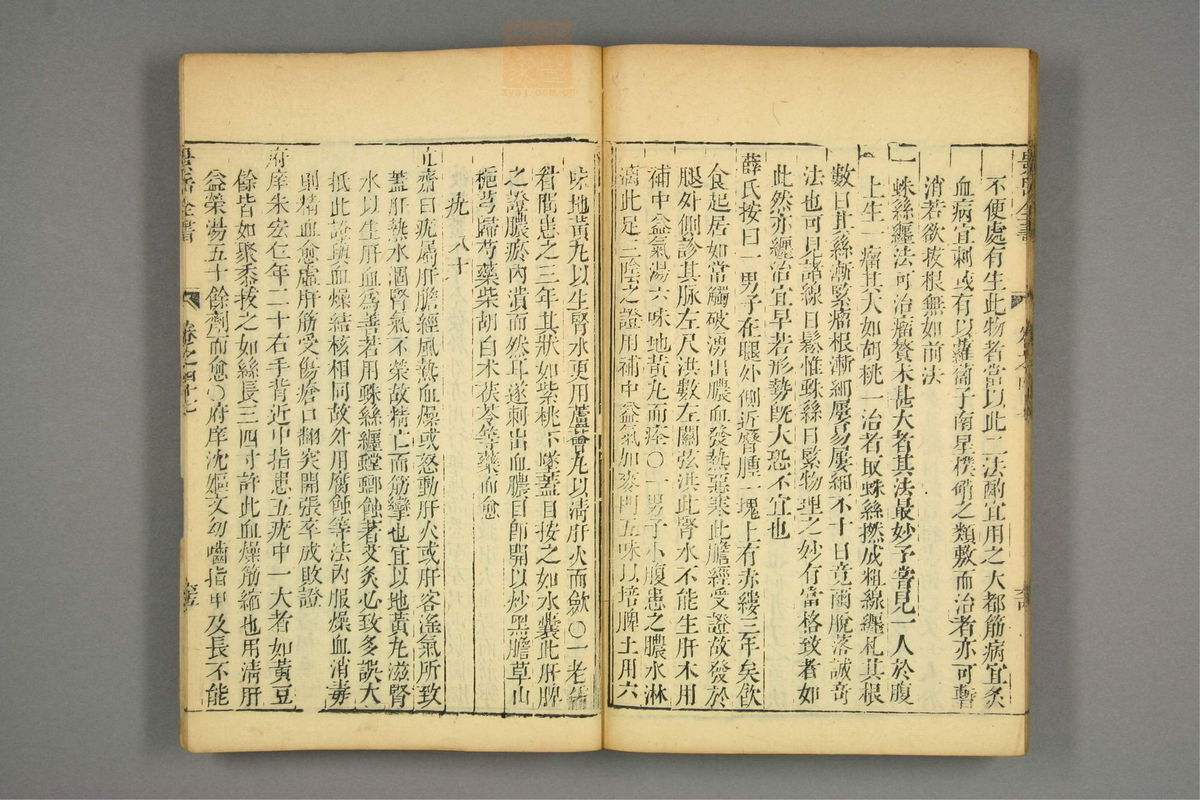 不便處有生此物者當以此二法酌宜用之大都筋病宜灸
血病宜刺或有以蘿蔔子南星樸硝之類敷而治者亦可暫
消若欲拔根無如前法
一蛛絲纏法可治瘤贅未甚大者其法最妙予嘗見一人於腹
上生一瘤其大如胡桃一治者取蛛絲撚成粗線纏札其根
數日其絲漸緊瘤根漸細屢易屢細不十日竟爾脫落誠奇
法也可見諸線日鬆惟蛛絲日緊物理之妙有當格致者如
此然亦纏治宜早若形勢既大恐不宜也
薛氏按曰一男子在腿外側近臍腫一塊上有赤縷三年矣飲
食起居如常觸破湧出膿血發熱惡寒此膽經受證故發於
腿外側診其脉左尺洪數左關弦洪此腎水不能生肝木用
補中益氣湯六味地黃丸而痊〇一男子小腹患之膿水淋
漓此足三陰之證用補中益氣加麥門五味以培脾土用六
味地黃丸以生腎水更用蘆薈丸以清肝火而斂〇一老儒
眷間患之三年其狀如紫桃下墜蓋目按之如水囊此肝脾
之證膿瘀內潰而然耳遂刺出血膿目即開以炒黑膽草山
梔芎歸芍藥柴胡白朮茯苓等藥而愈
疣 八十
立齋曰疣屬肝膽經風熱血燥或怒動肝火或肝客淫氣所致
蓋肝熱水涸腎氣不榮故精亡而筋攣也宜以地黃丸滋腎
水以生肝血爲善若用蛛絲纏螳螂蝕著艾灸心致多誤大
抵此證與血燥結核相同故外用腐蝕等法內服燥血消毒
則精血愈虛肝筋受傷瘡口翻突開張卒成敗證
府庠朱宏仁年二十右手背近中指患五疣中一大者如黃豆
餘皆如聚黍拔之如絲長三四寸許此血燥筋縮也用清肝
益榮湯五十餘劑而愈〇府庠沈姬文幼嚙指甲及長不能
景岳全書
卷之四十七
zysj.com.cn